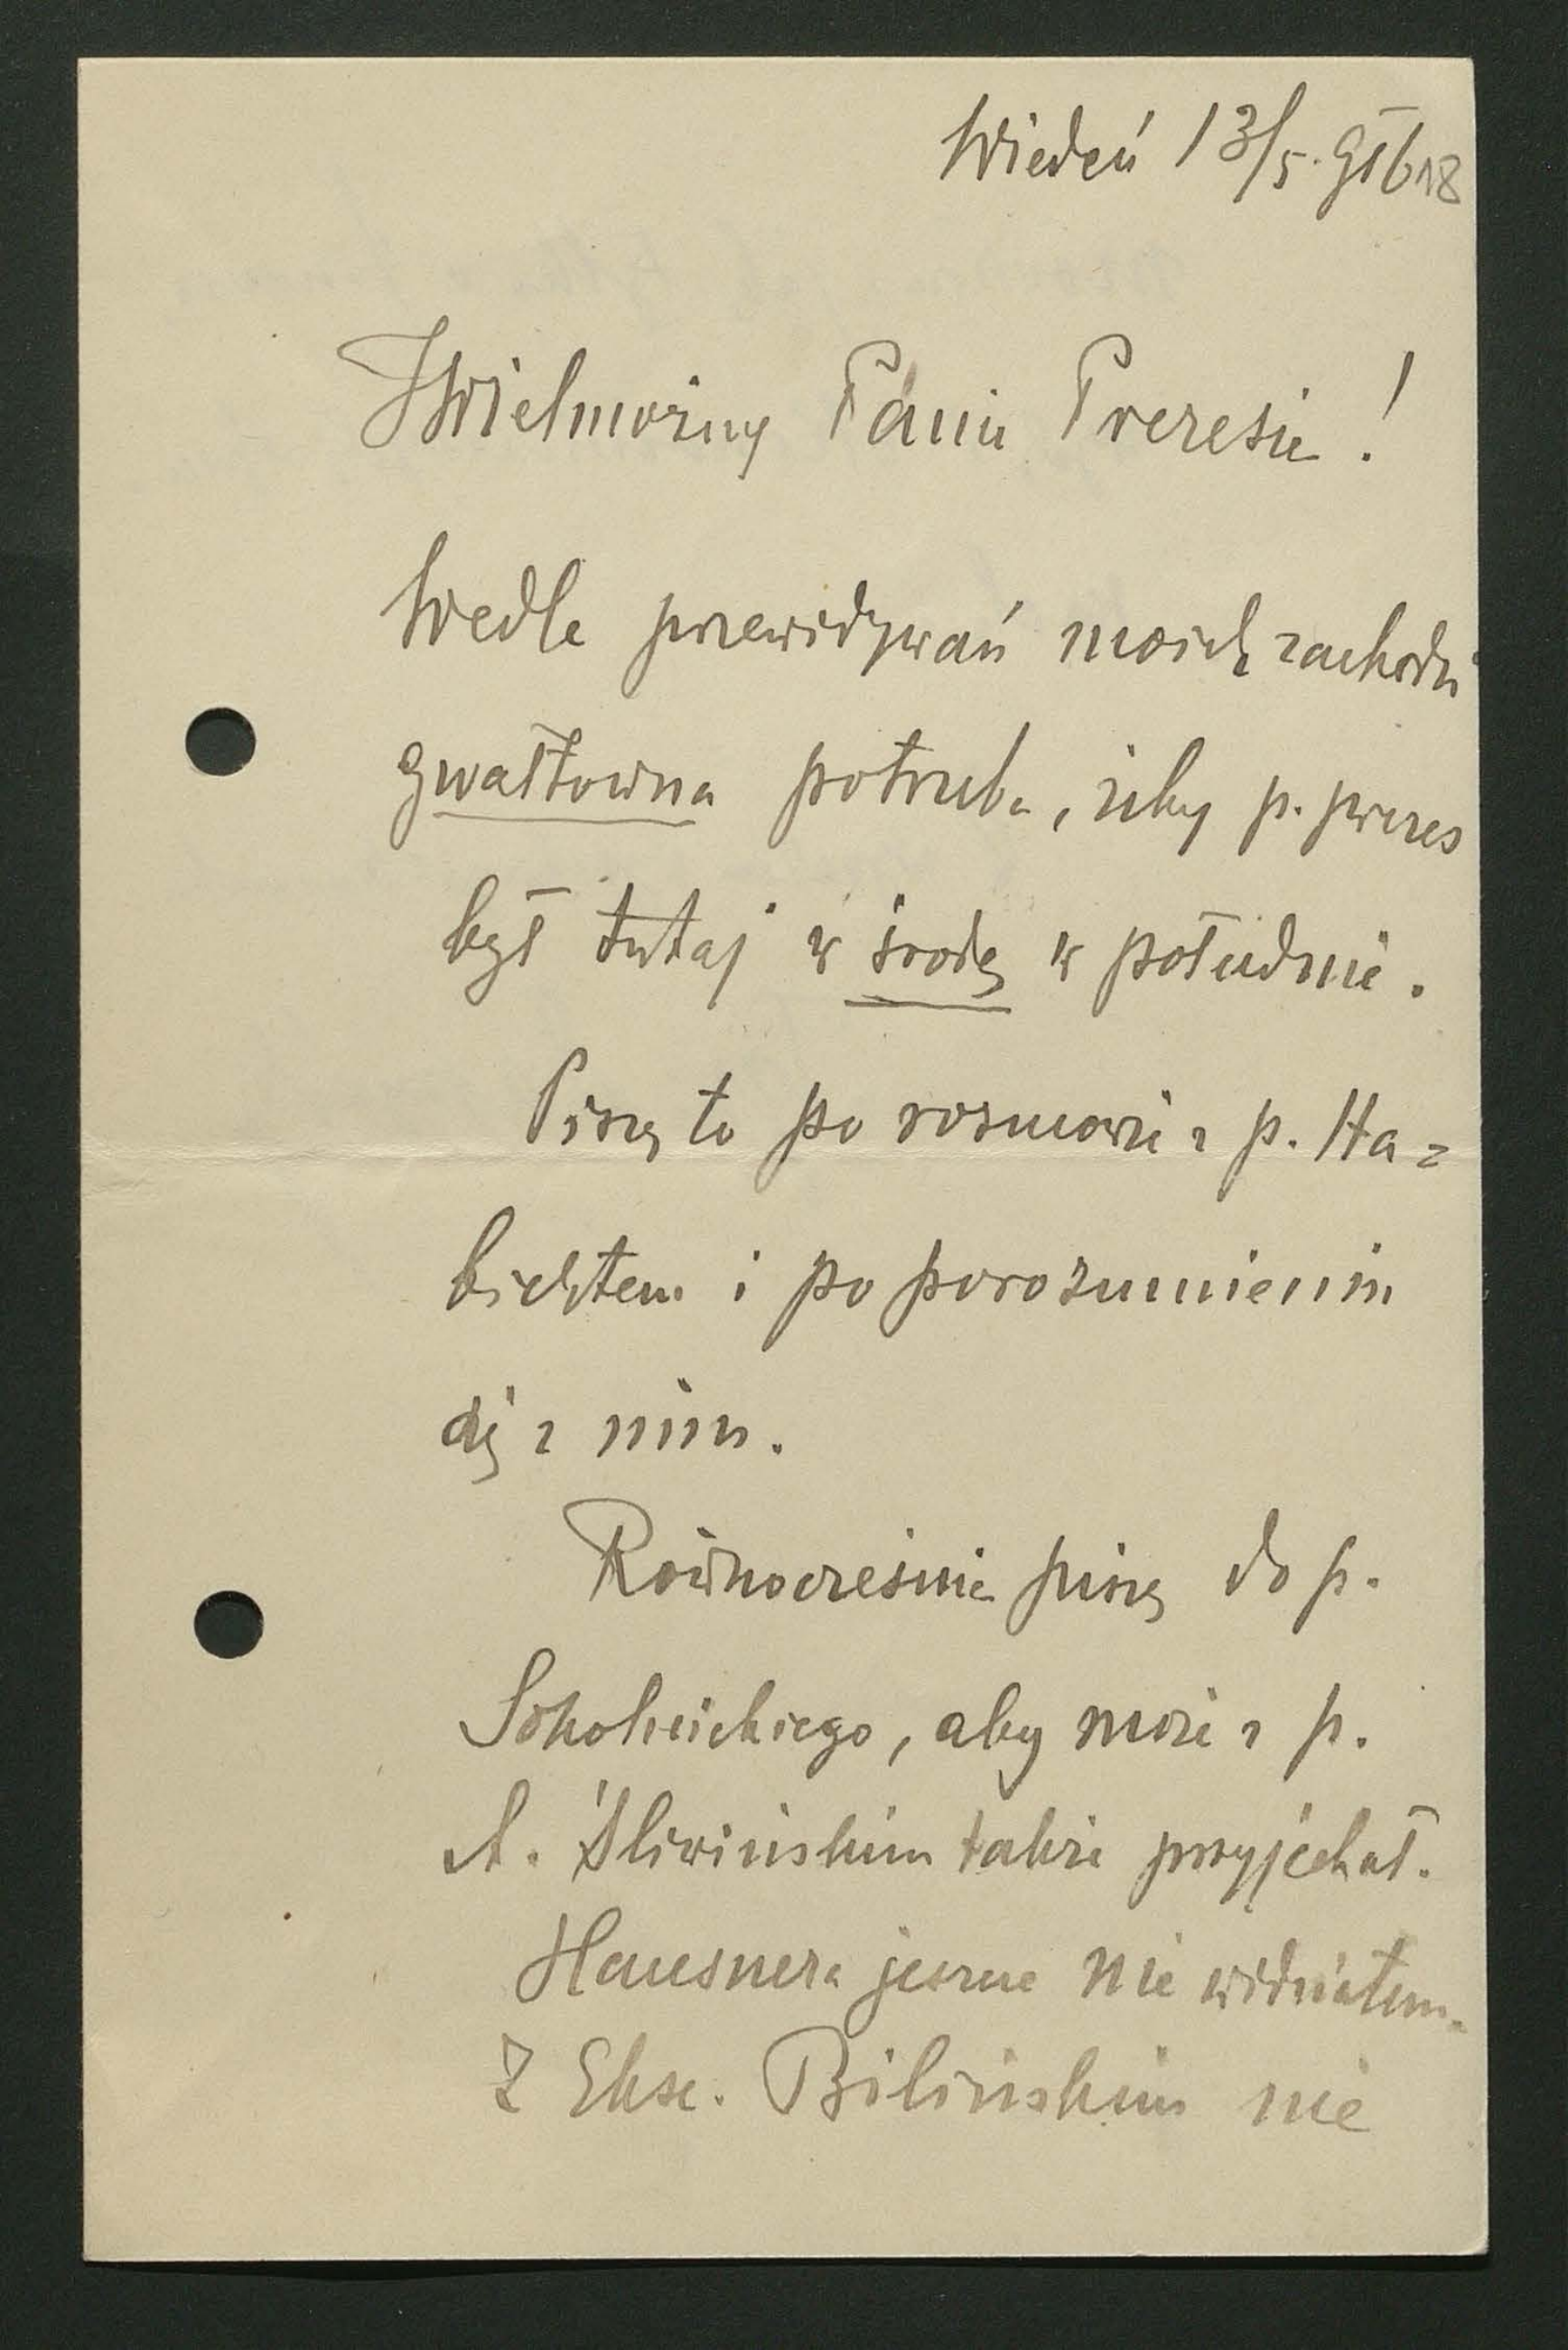 Wiedeń 13/5. 916 18
JWielmożny Panie Prezesie!
Wedle przewidywań moich zachodzi
gwałtowna potrzeba, żeby p. prezes
był tutaj w środę w południe.
Piszę to po rozmowie z p. Ha=
bichtem i po porozumieniu
się z nim.
Równocześnie piszę do p.
Sokolnickiego, aby może z p.
A. Śliwińskim także przyjechał.
Hausnera jeszcze nie widziałem.
Z Eksc. Bilińskim nie